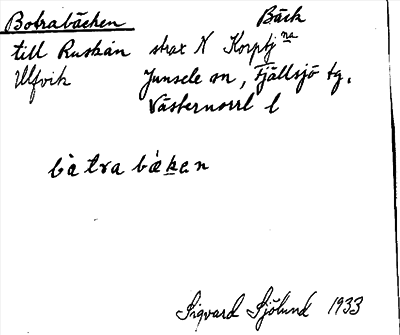 Botrabäcken Bäck
till Ruskån strax N Korptj na
Ulfvik Junsele sn, Fjällsjö tg.
Västernorrl l
båtrabäken
Sigvard Sjölund 1933